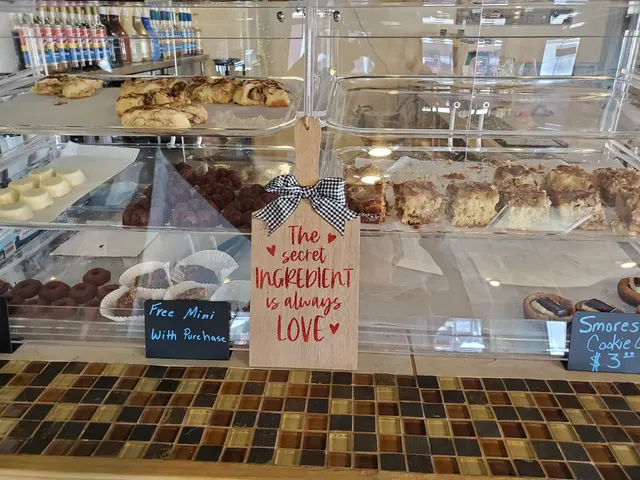 The
secret
INGREDIENT
is always
LOVE
Free Mini
With Purchase
Smores
Cookie C
$3.00